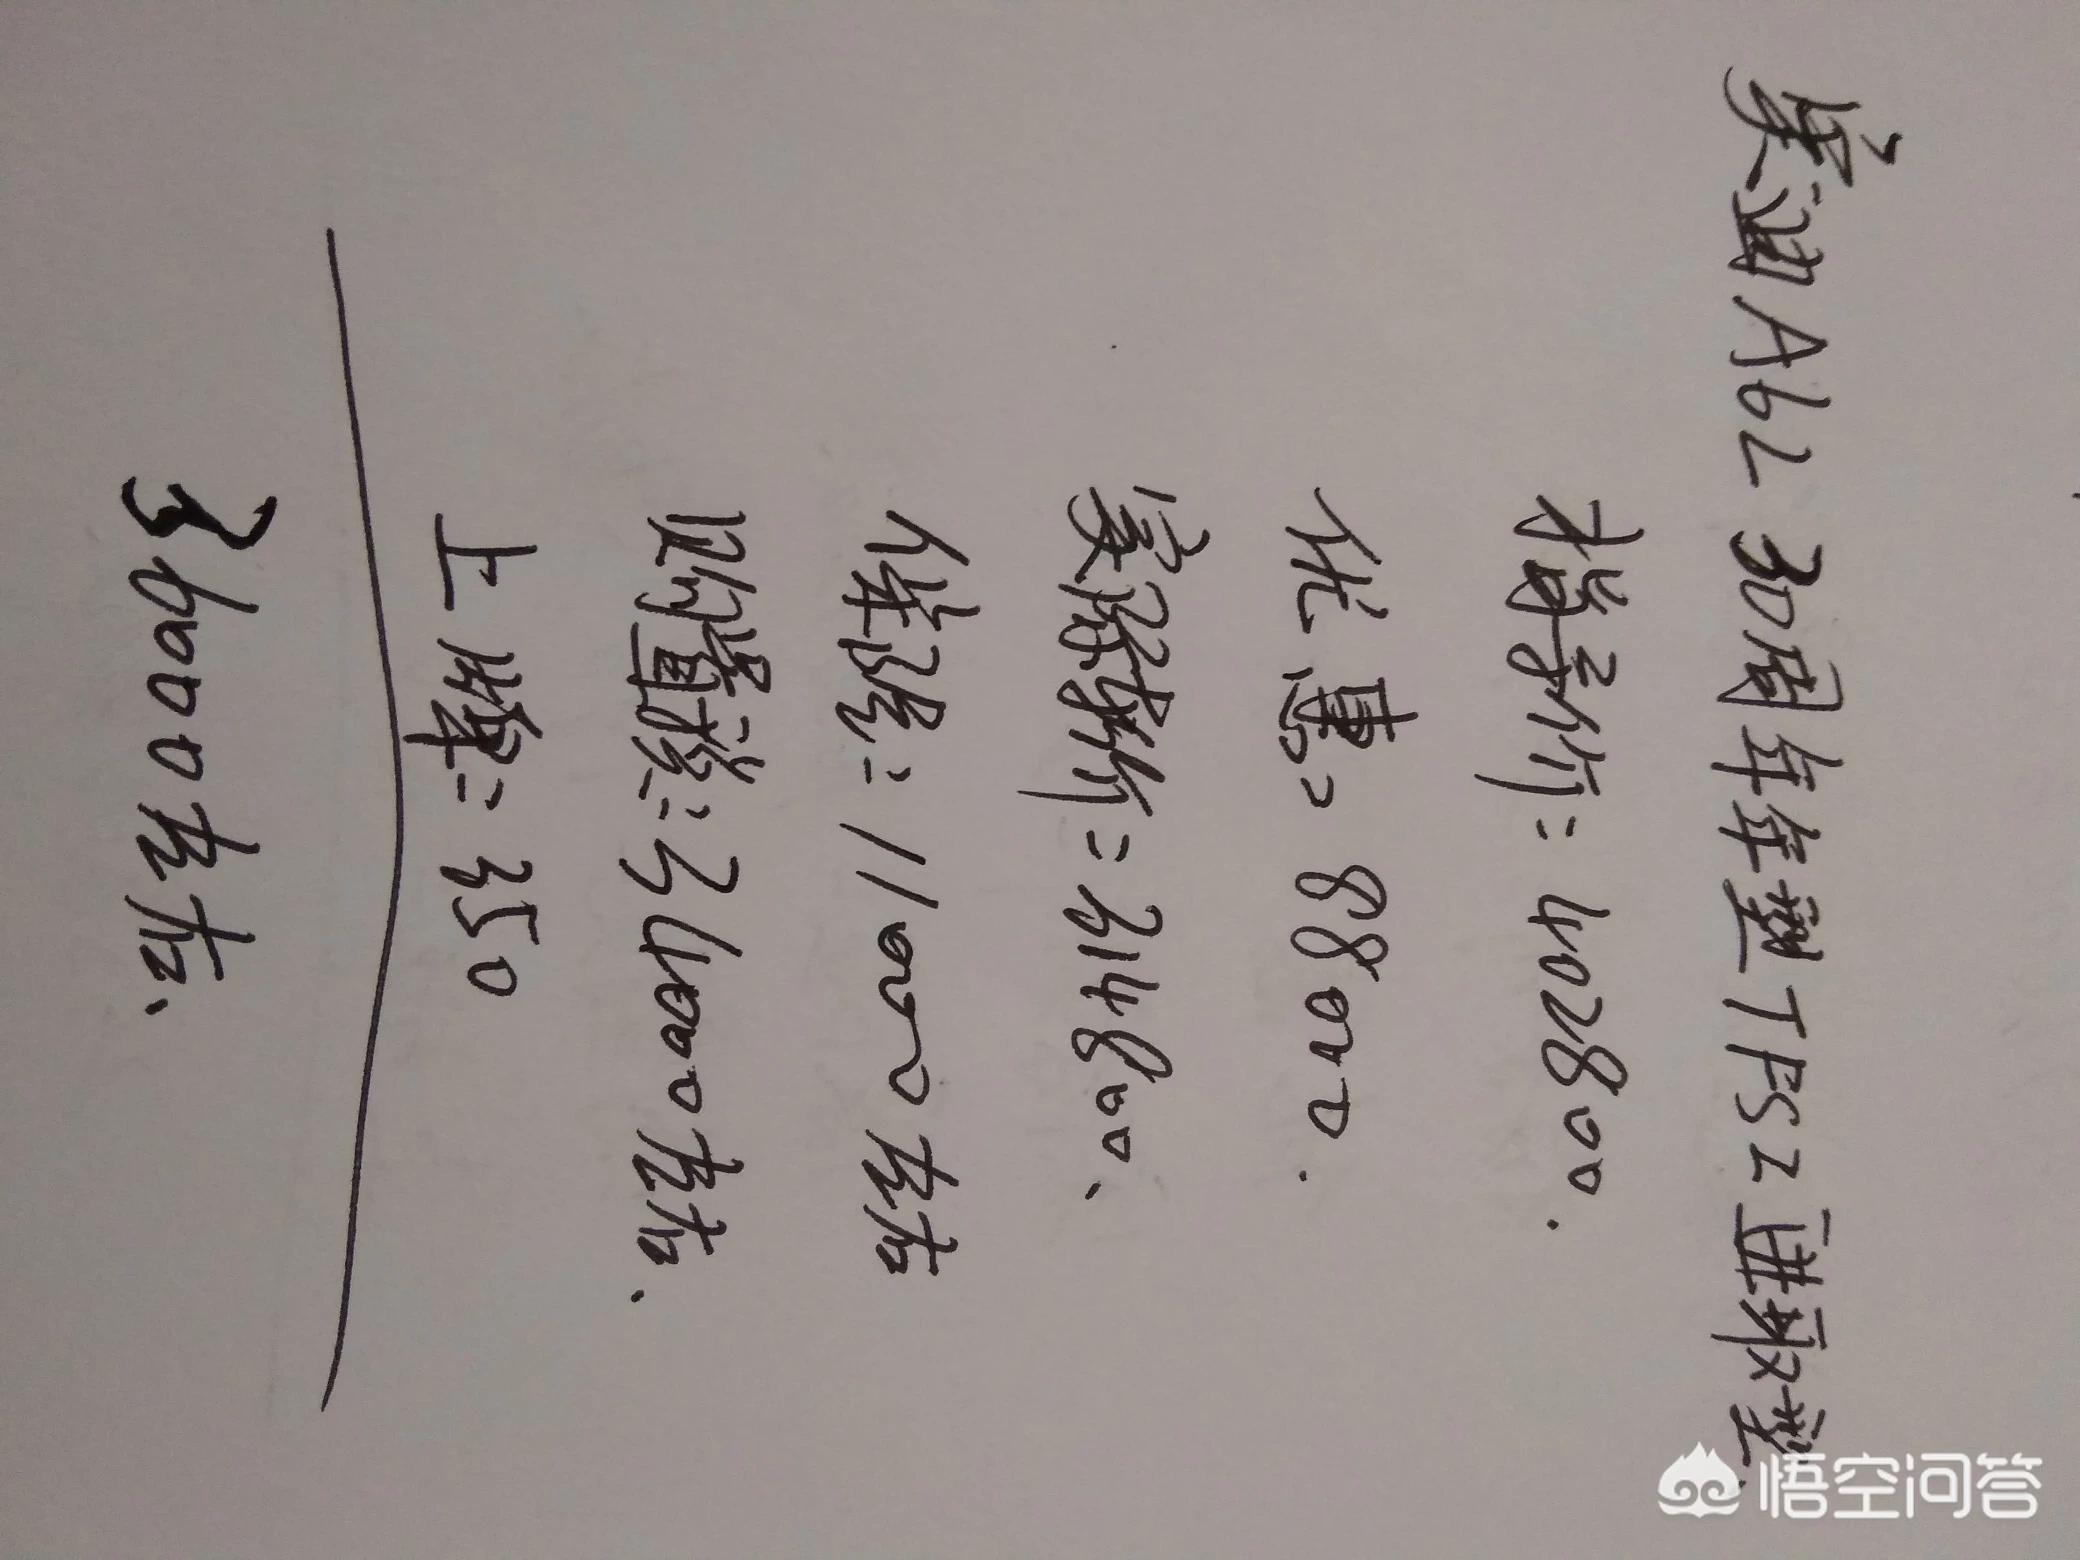 奥迪A6L 30周年年型TFSI进取型
指导价: 402800.
优惠: 88000.
实际价: 314800.
保险: 11000左右
购置税: 34000左右.
上牌: 350
36000左右.
悟空问答